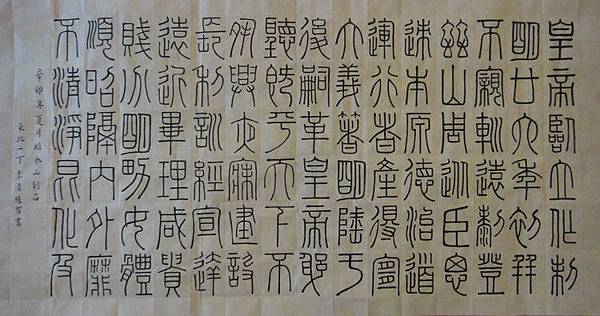 皇帝臨立作制
明廿六年初并
不親軔遠黎登
茲山周臣思
迹本原德治道
運行者產得宜
大義著明陲于
後嗣革皇帝躬
聽既平天下不
夙興夜寐建設
長利訓經宣達
遠近畢理咸貴
賤分明男女體
順昭隔內外靡
不清淨昆化及
辛卯年夏月臨泰山刻石
東北一丁李書